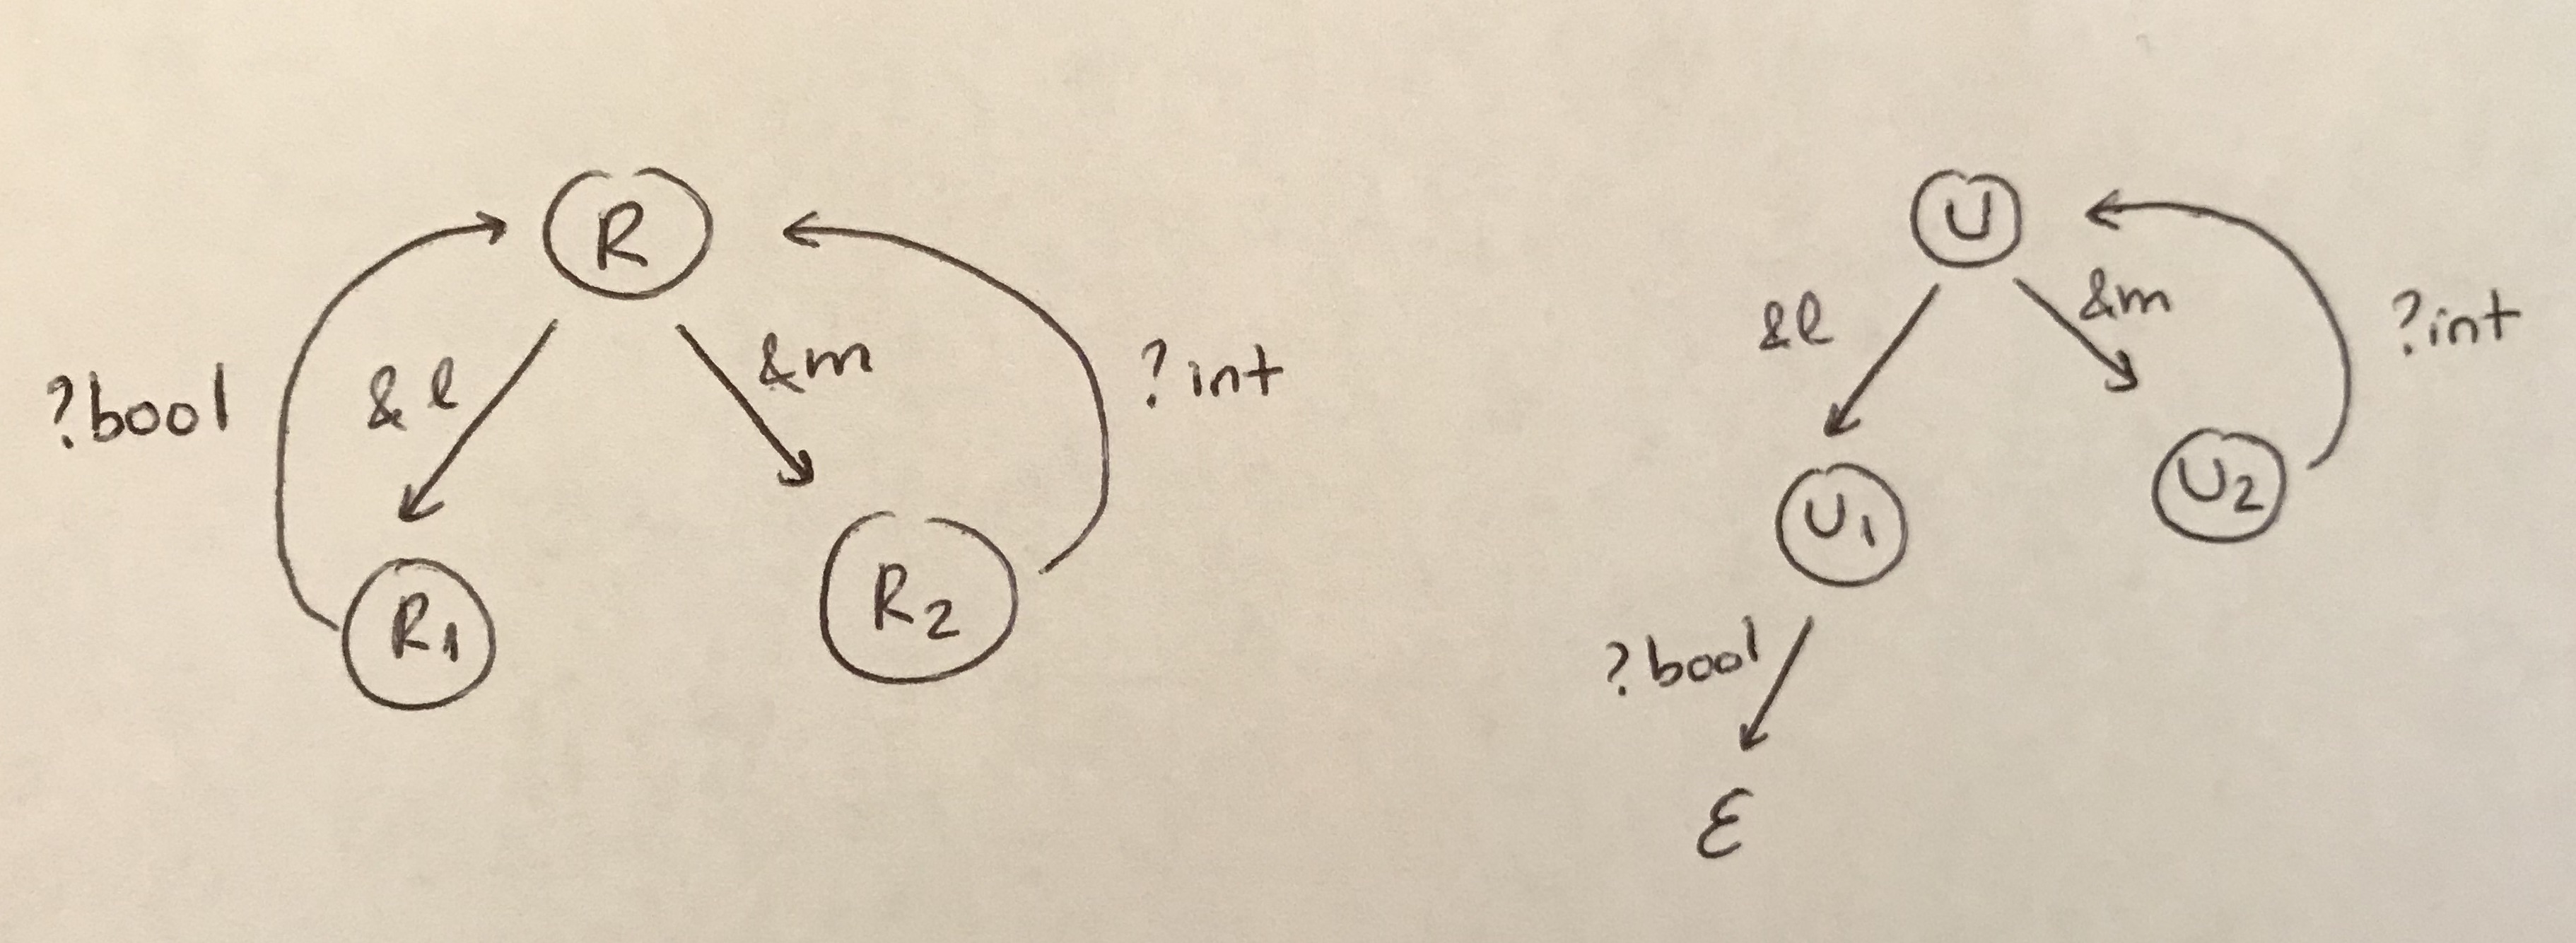 R
?bool
&l
&m
?int
R1
R2
U
&l
&m
?int
U1
U2
?bool
ε